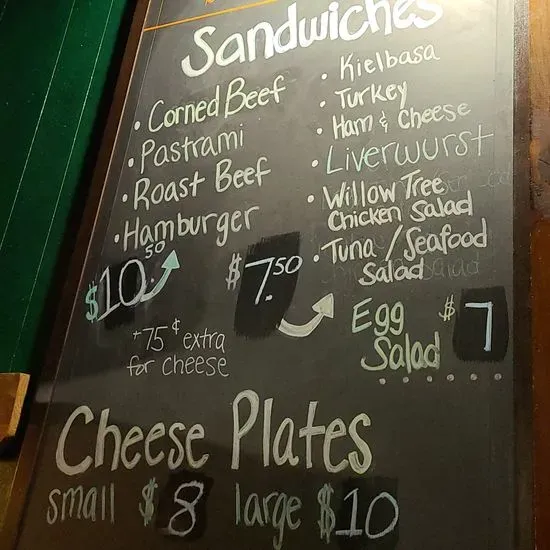 Sandwiches
• Corned Beef
• Pastrami
• Roast Beef
• Hamburger
$10.50
+75¢ extra
for cheese
• Kielbasa
• Turkey
• Ham & Cheese
• Liverwurst
• Willow Tree
Chicken Salad
• Tuna / Seafood
Salad
$7.50
Egg
Salad
$7
Cheese Plates
small $8 large $10